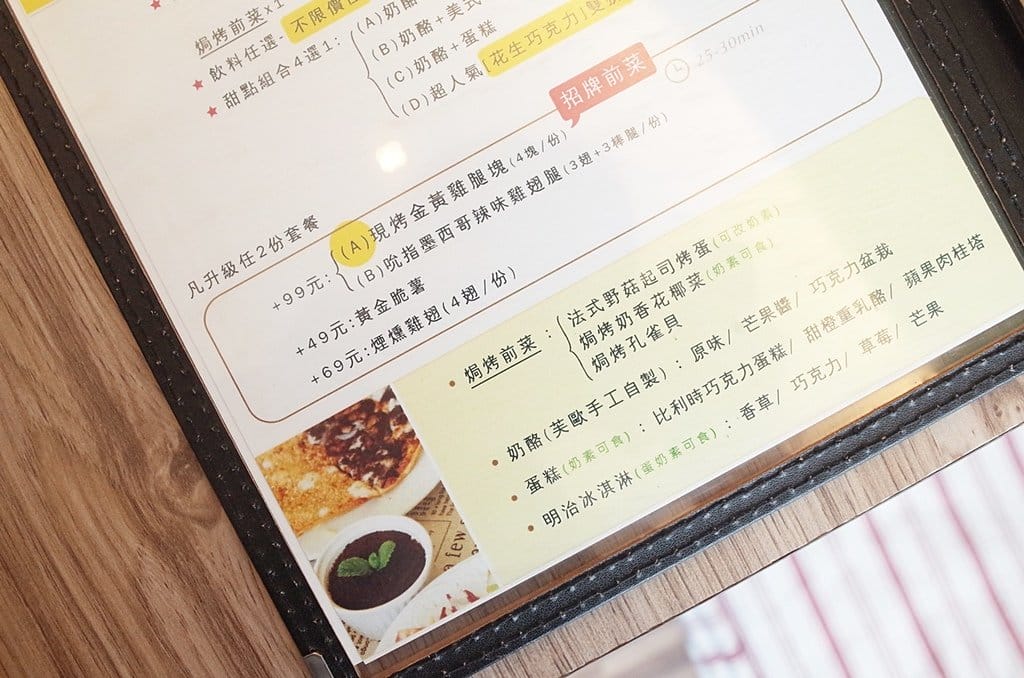 焗烤前菜x1
飲料任選 不限價
甜點組合4選1：
(A)奶酪
(B)奶酪+美式
(C)奶酪+蛋糕
(D)超人氣「花生巧克力」雙
招牌前菜
25-30min
凡升級任2份套餐
+99元：
(A)現烤金黃雞腿塊(4塊/份)
(B)吮指墨西哥辣味雞翅腿(3翅+3棒腿/份)
+49元：黃金脆薯
+69元：煙燻雞翅(4翅/份)
焗烤前菜：
法式野菇起司烤蛋(可改奶素)
焗烤奶香花椰菜(奶素可食)
焗烤孔雀貝
奶酪(芙歐手工自製)：原味/ 芒果醬/ 巧克力盆栽
蛋糕(奶素可食)：比利時巧克力蛋糕/ 甜橙重乳酪/ 蘋果肉桂塔
明治冰淇淋(蛋奶素可食)：香草/ 巧克力/ 草莓/ 芒果